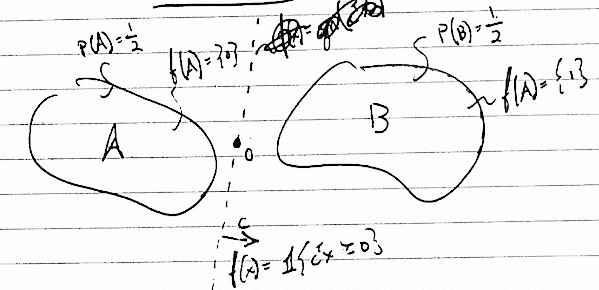 P(A)=½
f(A)={0}
P(B)=½
f(A)={1}
A
B
0
c
f(x)= 1{c'x ≥ 0}